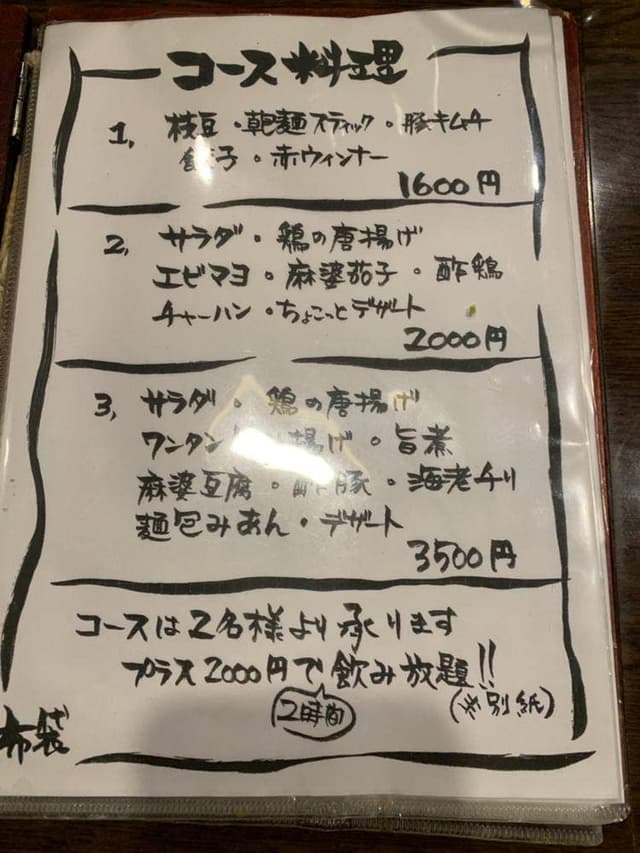 コース料理
1, 枝豆・乾麺スティック・豚キムチ
餃子・赤ウィンナー
1600円
2, サラダ・鶏の唐揚げ
エビマヨ・麻婆茄子・酢鶏
チャーハン・ちょこっとデザート
2000円
3, サラダ・鶏の唐揚げ
ワンタン 揚げ・旨煮
麻婆豆腐・酢豚・海老チリ
麺包みあん・デザート
3500円
コースは2名様より承ります
プラス2000円で飲み放題!!
2時間
別紙)
布袋